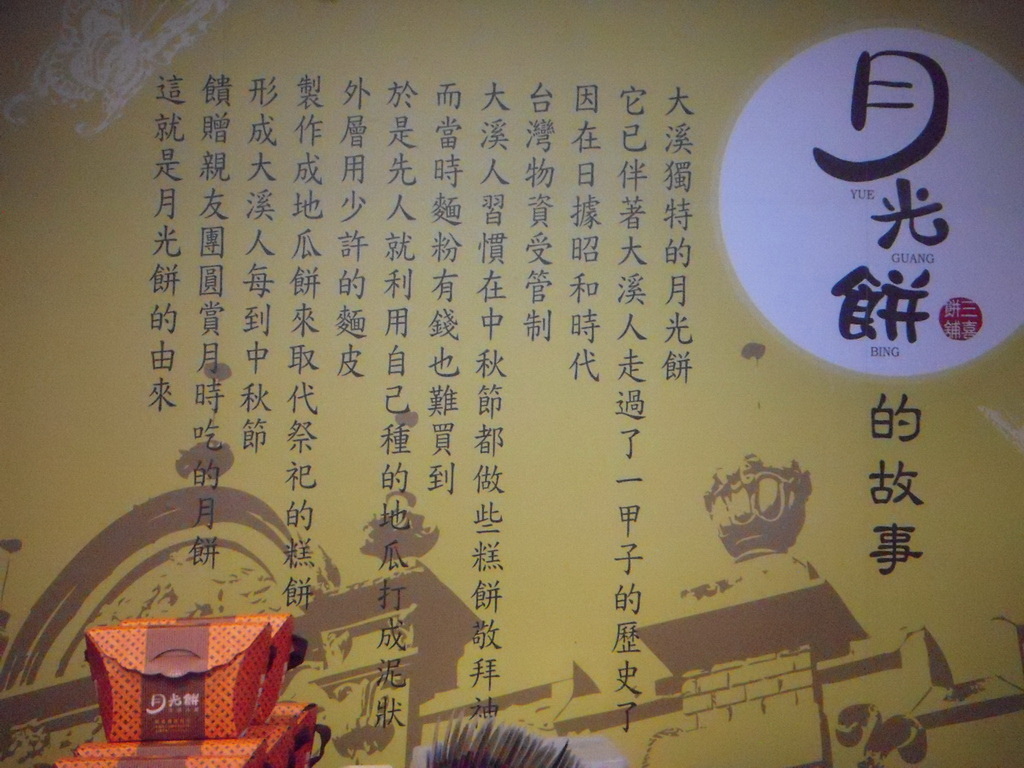 月光餅
YUE
GUANG
BING
三喜
餅舖
的故事
大溪獨特的月光餅
它已伴著大溪人走過了一甲子的歷史了
因在日據昭和時代
台灣物資受管制
大溪人習慣在中秋節都做些糕餅敬拜神
而當時麵粉有錢也難買到
於是先人就利用自己種的地瓜打成泥狀
外層用少許的麵皮
製作成地瓜餅來取代祭祀的糕餅
形成大溪人每到中秋節
饋贈親友團圓賞月時吃的月餅
這就是月光餅的由來
月光餅